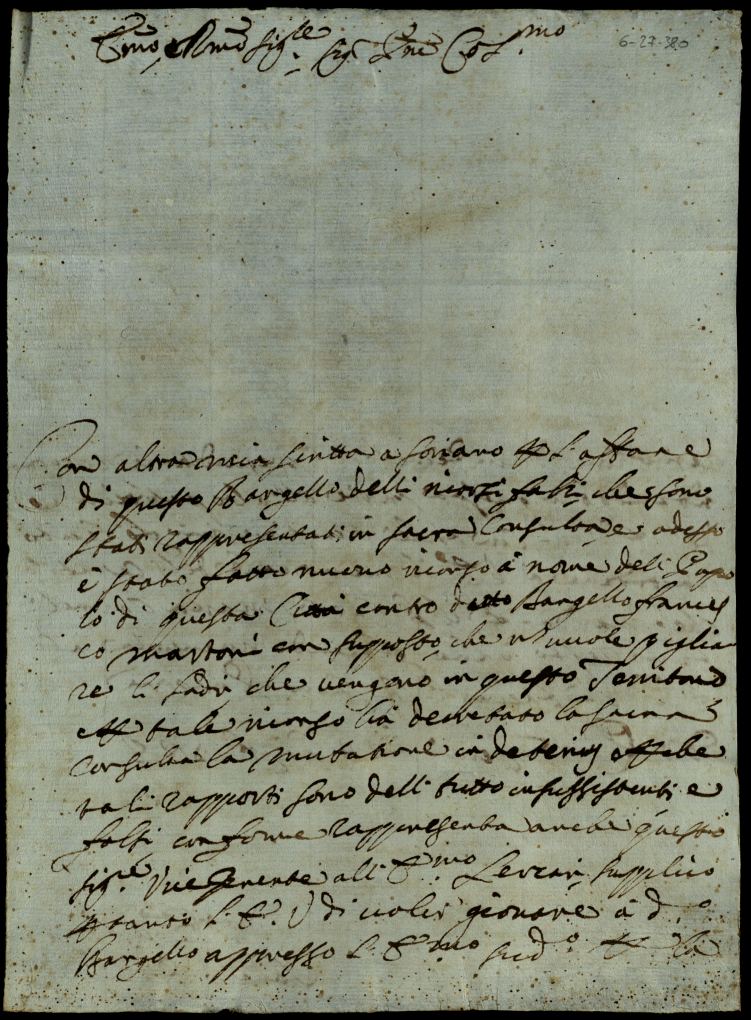 Emo, e Rmo Sigre Sig. Pne Col.mo
6-27-380
Con altra mia scritta a Soriano p l'affare
di questo Bargello delli ricorsi falsi, che sono
stati rappresentati in Sacra Consulta, e adesso
è stato fatto nuovo ricorso à nome del Popo
lo di questa Città contro detto Bargello Frances
co Martoni con supposto, che nō vuole piglia
re li ladri, che vengono in questo Territorio
e p tale ricorso hà decretato la Sacra
Consulta la mutatione in e perche
tali rapporti sono delli tutto insussistenti e
falsi conforme rappresenta anche questo
Sigre Vicegerente all' Emo Lercari, supplico
p tanto l'E. V di voler giovare à d.o
Bargello appresso l'Emo sud.o p la